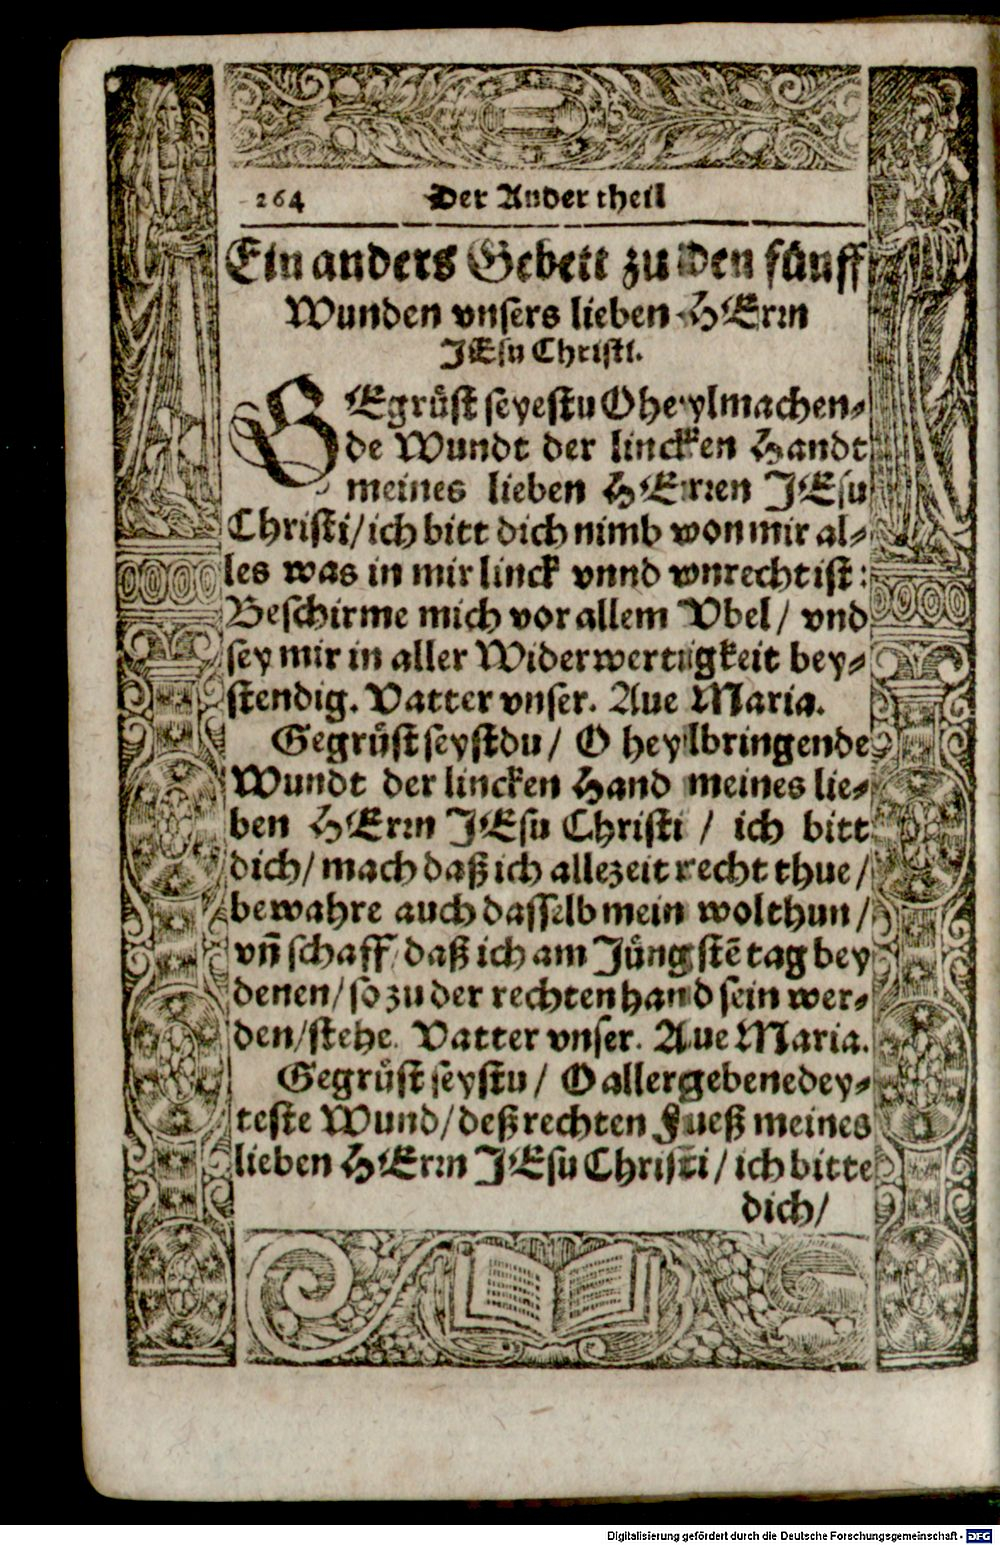 264 Der Ander theil
Ein anders Gebett zu den fünff
Wunden vnsers lieben HErrn
JEsu Christi.
GEgrüst seyestu O heylmachen-
de Wundt der lincken Handt
meines lieben HErren JEsu
Christi/ ich bitt dich nimb von mir al-
les was in mir linck vnnd vnrecht ist:
Beschirme mich vor allem Vbel/ vnd
sey mir in aller Widerwertigkeit bey-
stendig. Vatter vnser. Aue Maria.
Gegrüst seystdu/ O heylbringende
Wundt der lincken Hand meines lie-
ben HErrn JEsu Christi / ich bitt
dich/ mach daß ich allezeit recht thue/
bewahre auch dasselb mein wolthun/
vñ schaff/ daß ich am Jüngstē tag bey
denen/ so zu der rechten hand sein wer-
den/ stehe. Vatter vnser. Aue Maria.
Gegrüst seystu/ O allergebenedey-
teste Wund/ deß rechten Fueß meines
lieben HErrn JEsu Christi/ ich bitte
dich/
Digitalisierung gefördert durch die Deutsche Forschungsgemeinschaft - DFG